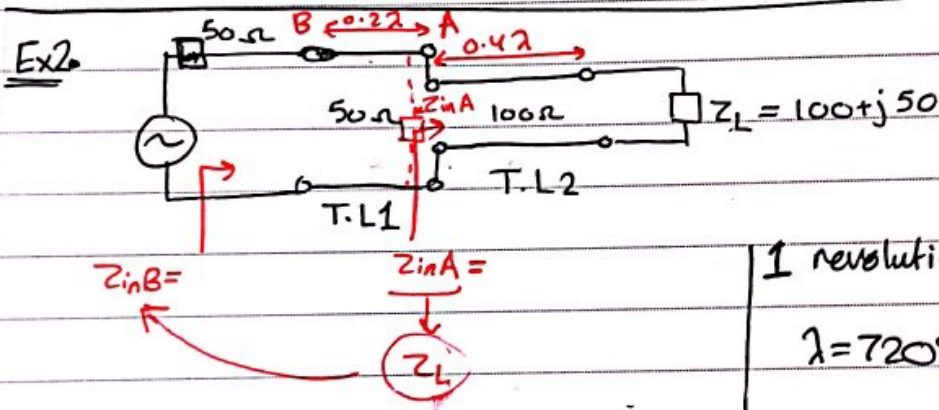 Ex2.
50Ω
B
0.2λ
A
0.4λ
50Ω
ZinA
100Ω
Z_L = 100+j50
T.L1
T.L2
ZinB=
ZinA=
Z_L
1 revoluti
λ=720°